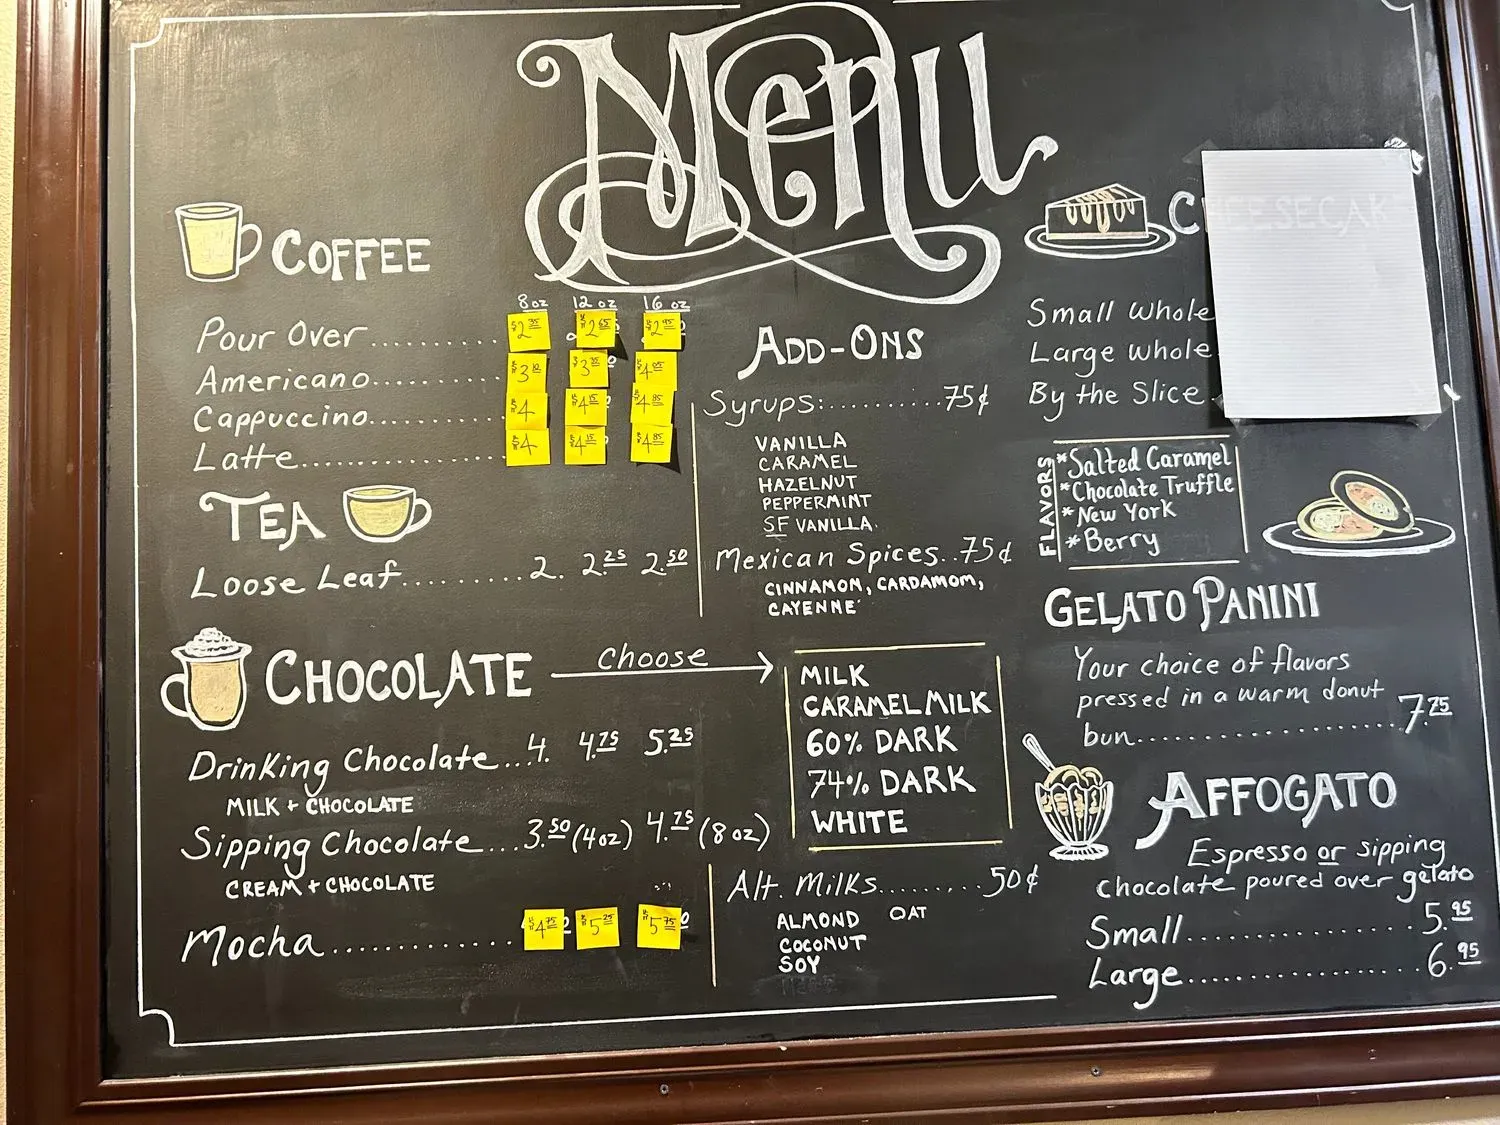 Menu
COFFEE
8 oz 12 oz 16 oz
Pour Over.......... $2.35 $2.65 $2.95
Americano.......... $3.10 $3.35 $4.05
Cappuccino.......... $4 $4.15 $4.85
Latte.......... $4 $4.15 $4.85
TEA
Loose Leaf.......... 2. 2.25 2.50
CHOCOLATE
choose
Drinking Chocolate...4. 4.75 5.25
MILK + CHOCOLATE
Sipping Chocolate...3.50 (4oz) 4.75 (8 oz)
CREAM + CHOCOLATE
Mocha.......... $4.75 $5.25 $5.75
ADD-ONS
Syrups:..........75¢
VANILLA
CARAMEL
HAZELNUT
PEPPERMINT
SF VANILLA.
Mexican Spices..75¢
CINNAMOM, CARDAMOM,
CAYENNE
MILK
CARAMEL MILK
60% DARK
74% DARK
WHITE
Alt. Milks.........50¢
ALMOND OAT
COCONUT
SOY
CHEESECAK
Small Whole
Large Whole
By the Slice
FLAVORS
*Salted Caramel
*Chocolate Truffle
*New York
*Berry
GELATO PANINI
Your choice of flavors
pressed in a warm donut
bun.................7.75
AFFOGATO
Espresso or sipping
chocolate poured over gelato
Small.................5.95
Large.................6.95